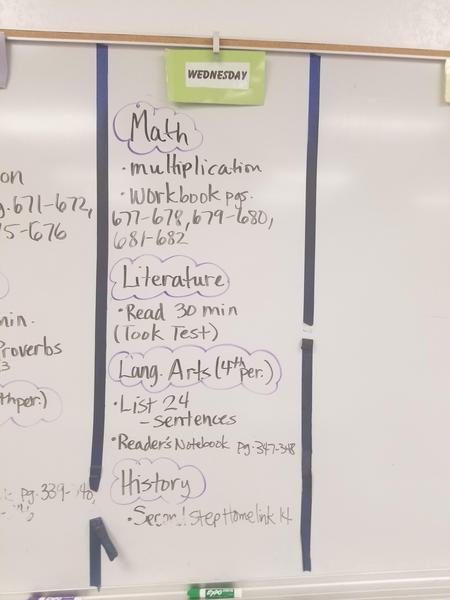 WEDNESDAY
Math
• multiplication
• Workbook pgs.
677-678, 679-680,
681-682
Literature
• Read 30 min
(Took Test)
Lang. Arts (4th per.)
• List 24
- sentences
• Reader's Notebook pg. 347-348
History
• Second Step Homelink
on
671-672,
5-676
min.
Proverbs
3
thper.)
pg. 339-340,
EXPO